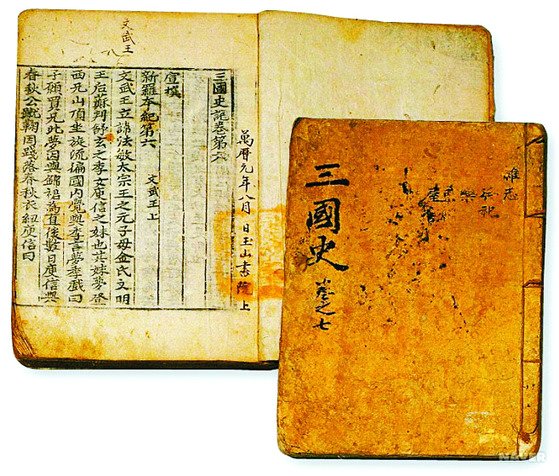 文武王
萬曆元年八月 日玉山書院上
三國史記卷第六
宣撰
新羅本紀第六
文武王上
文武王立諱法敏太宗王之元子母金氏文明
王后蘇判舒玄之季女庾信之妹也其姊夢登
西兄山頂坐旋流徧國內覺與季言夢季戱曰
予願買兄此夢因與錦裙爲直後數日庾信與
春秋公蹴鞠因踐落春秋衣紐庾信曰
雜志
三國史
卷之七
NAVER